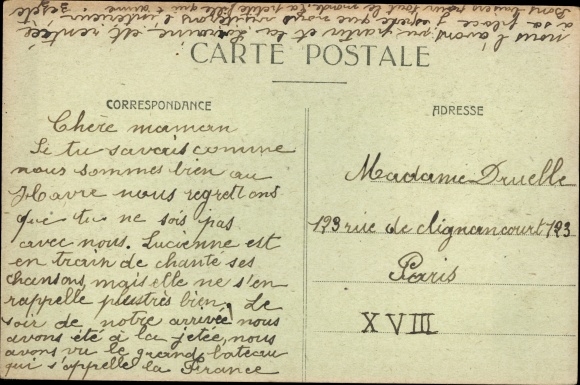 CARTE POSTALE
CORRESPONDANCE
Chère maman
Si tu savais comme
nous sommes bien au
Havre nous regrettons
que tu ne sois pas
avec nous. Lucienne est
en train de chante ses
chansons, mais elle ne s'en
rappelle plus très bien. Le
soir de notre arrivée nous
avons été à la jetée, nous
avons vu le grand bateau
qui s'appelle la France
nous l'avons vu partir et la Lorraine est rentrée
a sa place j'espère que nous visiterons l'intérieur
Bons baisers pour tout le monde ta petite fille qui t'aime
ADRESSE
Madame Druelle
123 rue de Clignancourt 123
Paris
XVIII